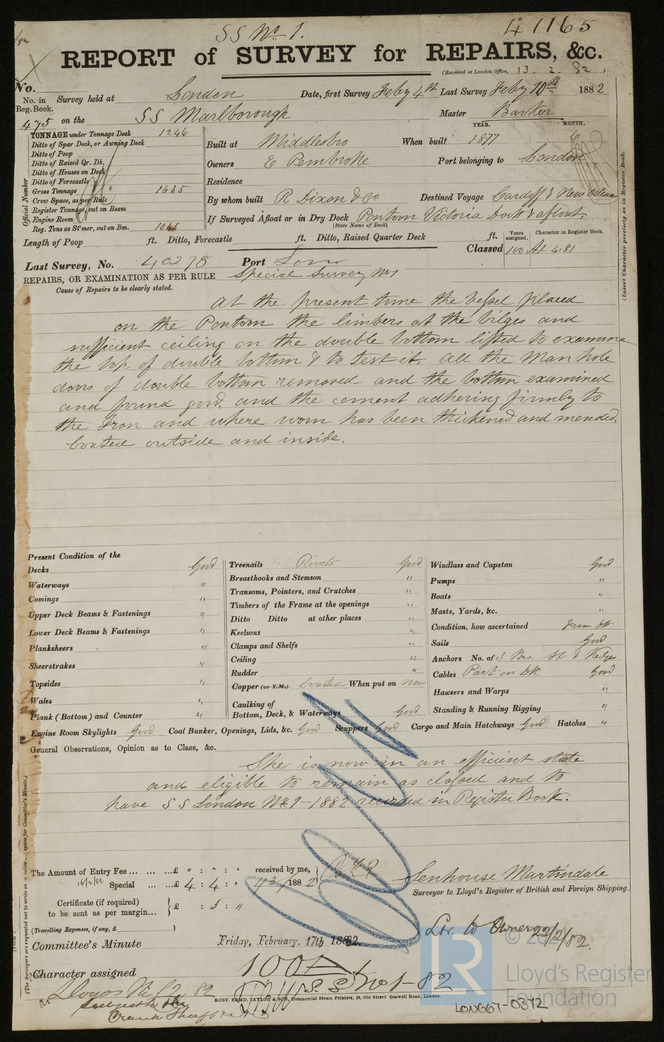 SS No 1.
41165
REPORT of SURVEY for REPAIRS, &c.
(Received at London Office, 13. 2. 82.
No.
No. in Reg. Book.
Survey held at London Date, first Survey Feby 4th Last Survey Feby 10th 1882
475 on the SS Marlborough Master Barker
TONNAGE under Tonnage Deck 1246
Ditto of Spar Deck, or Awning Deck
Ditto of Poop
Ditto of Raised Qr. Dk.
Ditto of Houses on Deck
Ditto of Forecastle
Gross Tonnage 1635
Crew Space, as per Rule
Register Tonnage, cut on Beam
Engine Room
Reg. Tons as St'mer, cut on Bm. 1045
Official Number
YEAR. MONTH.
Built at Middlesbro When built 1877 6
Owners E Pembroke Port belonging to London
Residence
By whom built R Dixon & Co Destined Voyage Cardiff & New Orleans
If Surveyed Afloat or in Dry Dock Pontoon Victoria Dock & afloat
(State Name of Dock)
Length of Poop ft. Ditto, Forecastle ft. Ditto, Raised Quarter Deck ft.
Years assigned. Character in Register Book.
Classed 100 A1 4.81
(Insert Character precisely as in Register Book.
Last Survey, No. 40278 Port Lon
REPAIRS, OR EXAMINATION AS PER RULE Special Survey No 1
Cause of Repairs to be clearly stated.
At the present time the vessel placed
on the Pontoon the limbers at the bilges and
sufficient ceiling on the double bottom lifted to examine
the top of double bottom & to test it. All the Man hole
doors of double bottom removed and the bottom examined
and found good, and the cement adhering firmly to
the Iron and where worn has been thickened and mended.
Coated outside and inside.
Present Condition of the
Decks Good
Waterways "
Comings "
Upper Deck Beams & Fastenings "
Lower Deck Beams & Fastenings "
Planksheers "
Sheerstrakes "
Topsides "
Wales "
Plank (Bottom) and Counter "
Treenails Rivets Good
Breasthooks and Stemson "
Transoms, Pointers, and Crutches "
Timbers of the Frame at the openings "
Ditto Ditto at other places "
Keelsons "
Clamps and Shelfs "
Ceiling "
Rudder "
Copper (or Y.M.) Coated When put on Now
Caulking of Bottom, Deck, & Waterways Good
Windlass and Capstan Good
Pumps "
Boats "
Masts, Yards, &c. "
Condition, how ascertained from dk
Sails Good
Anchors No. of 3 Bro. St & Kedge
Cables Part on dk Good
Hawsers and Warps "
Standing & Running Rigging "
Engine Room Skylights Good Coal Bunker, Openings, Lids, &c. Good Scuppers Good Cargo and Main Hatchways Good Hatches "
General Observations, Opinion as to Class, &c.
She is now in an efficient state
and eligible to remain as classed and to
have S S London No 1-1882 recorded in Register Book.
The Amount of Entry Fee £ " : " : " received by me,
Special £ 4 : 4 : " 1882
Certificate (if required) to be sent as per margin £ : 5 : "
(Travelling Expenses, if any, £ )
Senhouse Martindale
Surveyor to Lloyd's Register of British and Foreign Shipping.
Lr. to Owners 22/2/82.
Committee's Minute Friday, February. 17th 1882.
Character assigned 100 A1
S.S. No 1-82
Lloyds
RODY. BYRD. TAYLOR & SON, Commercial Steam Printers, 19, Old Street Goswell Road, London.
LR
Lloyd's Register
Foundation
LON667-0372